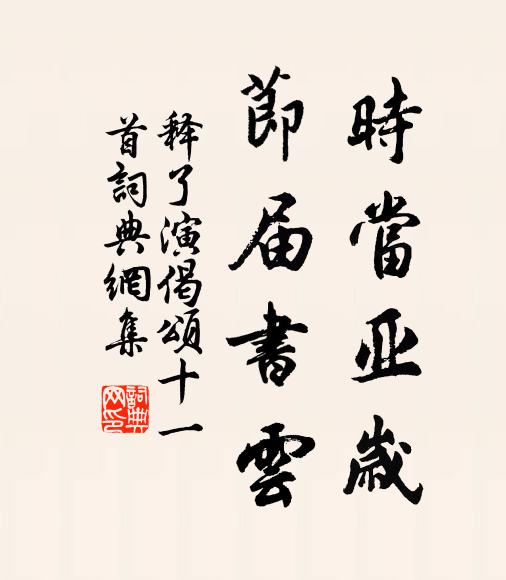 時當亚歲
節届書雲
釋了演偈頌十一
首詞典網集
詞典网印